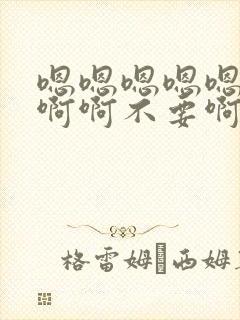 嗯嗯嗯嗯嗯
啊啊不要啊
格雷姆 西姆